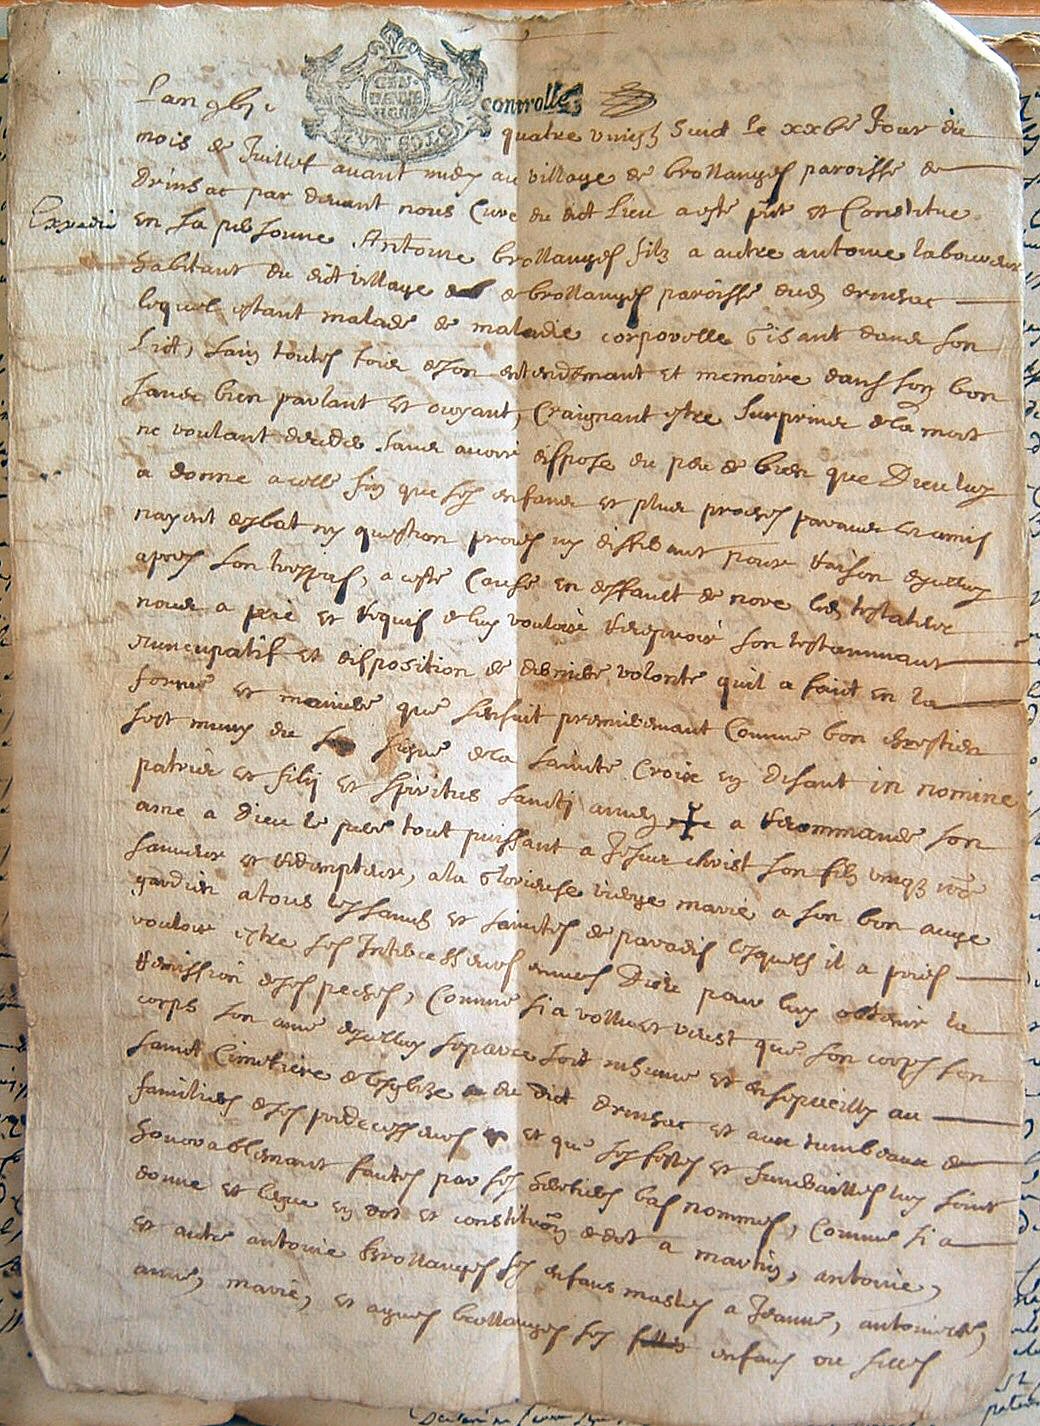 controllé
Lan gbjc quatre vingtz huict le xxbe Jour du
mois de Juillet avant midy au village de brollanges paroisse de
drinsac par devant nous Curé du dict lieu a esté pnt et Constitué
Expedié
en sa personne Antoine brollanges filz a autre antoine laboureur
habitant du dict village de brollanges paroisse dud drinsac
lequel estant malade de maladie corporelle Gisant dans son
Lict, sain toutes fois de son entendemant et memoire dans son bon
sance bien parlant et oioyant, Craignant estre surprins de la mort
ne voulant decedé sans avoir dispose du peu de bien que Dieu luy
a donné a celle fin que ses enfans et plus proches parans et amis
nayent desbat ny question proces ny differant pour raison dyceluy
apres son trespas, a ceste Cause en deffault de nore led testateur
nous a prié et requis de luy vouloir recepvoir son testammant
nuncupatif et disposition de derniere volonté quil a faict en la
forme et maniere que sensuit premieremant Comme bon chrestien
sest muny du signe de la sainte Croix en disant in nomine
patris et filij et spiritus sancti amen a recommandé son
ame a Dieu le pere tout puissant a Jesus christ son filz unqz nre
sauveur et redempteur, a la Glorieuse vierge marie a son bon ange
gardien a tous les saincts et saintes de paradis lesquels il a priés
vouloir estre ses Intercesseurs envers Dieu pour luy obtenir la
remission de ses peches, Comme si a vollu et veust que son corps son
corps son ame diceluy separée soit inhumé et ensepvelly au
sainct Cimetiere de lesglize du dict drinsac et aux tumbeaux de
familieds de ses predecesseurs et que ses festes et funerailles luy soint
honorablemant faites par ses heretiers bas nommés, Comme si a
donné et legué en dot et constitution de dot a martin, antoine,
et autre antoine Brollanges ses enfans masles a Jeanne, antoinette,
anne, marie, et agnes brollanges ses enfans ou filles